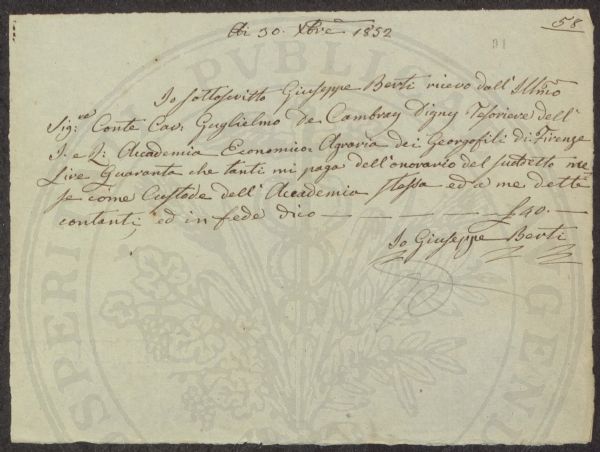 Adi 30. Xbre 1852
58
Io sottoscritto Giuseppe Berti ricevo dall' Illmo
Sigre Conte Cav: Guglielmo De Cambray Digny Tesoriere dell'
I. e R: Accademia Economico-Agraria dei Georgofili di Firenze
Lire Quaranta che tanti mi paga dell'onorario del suddetto me=
se come Custode dell'Accademia stessa ed a me detti
contanti, ed in fede dico — — — — £40. —
Io Giuseppe Berti
PUBLICA
PROSPERI
GENU